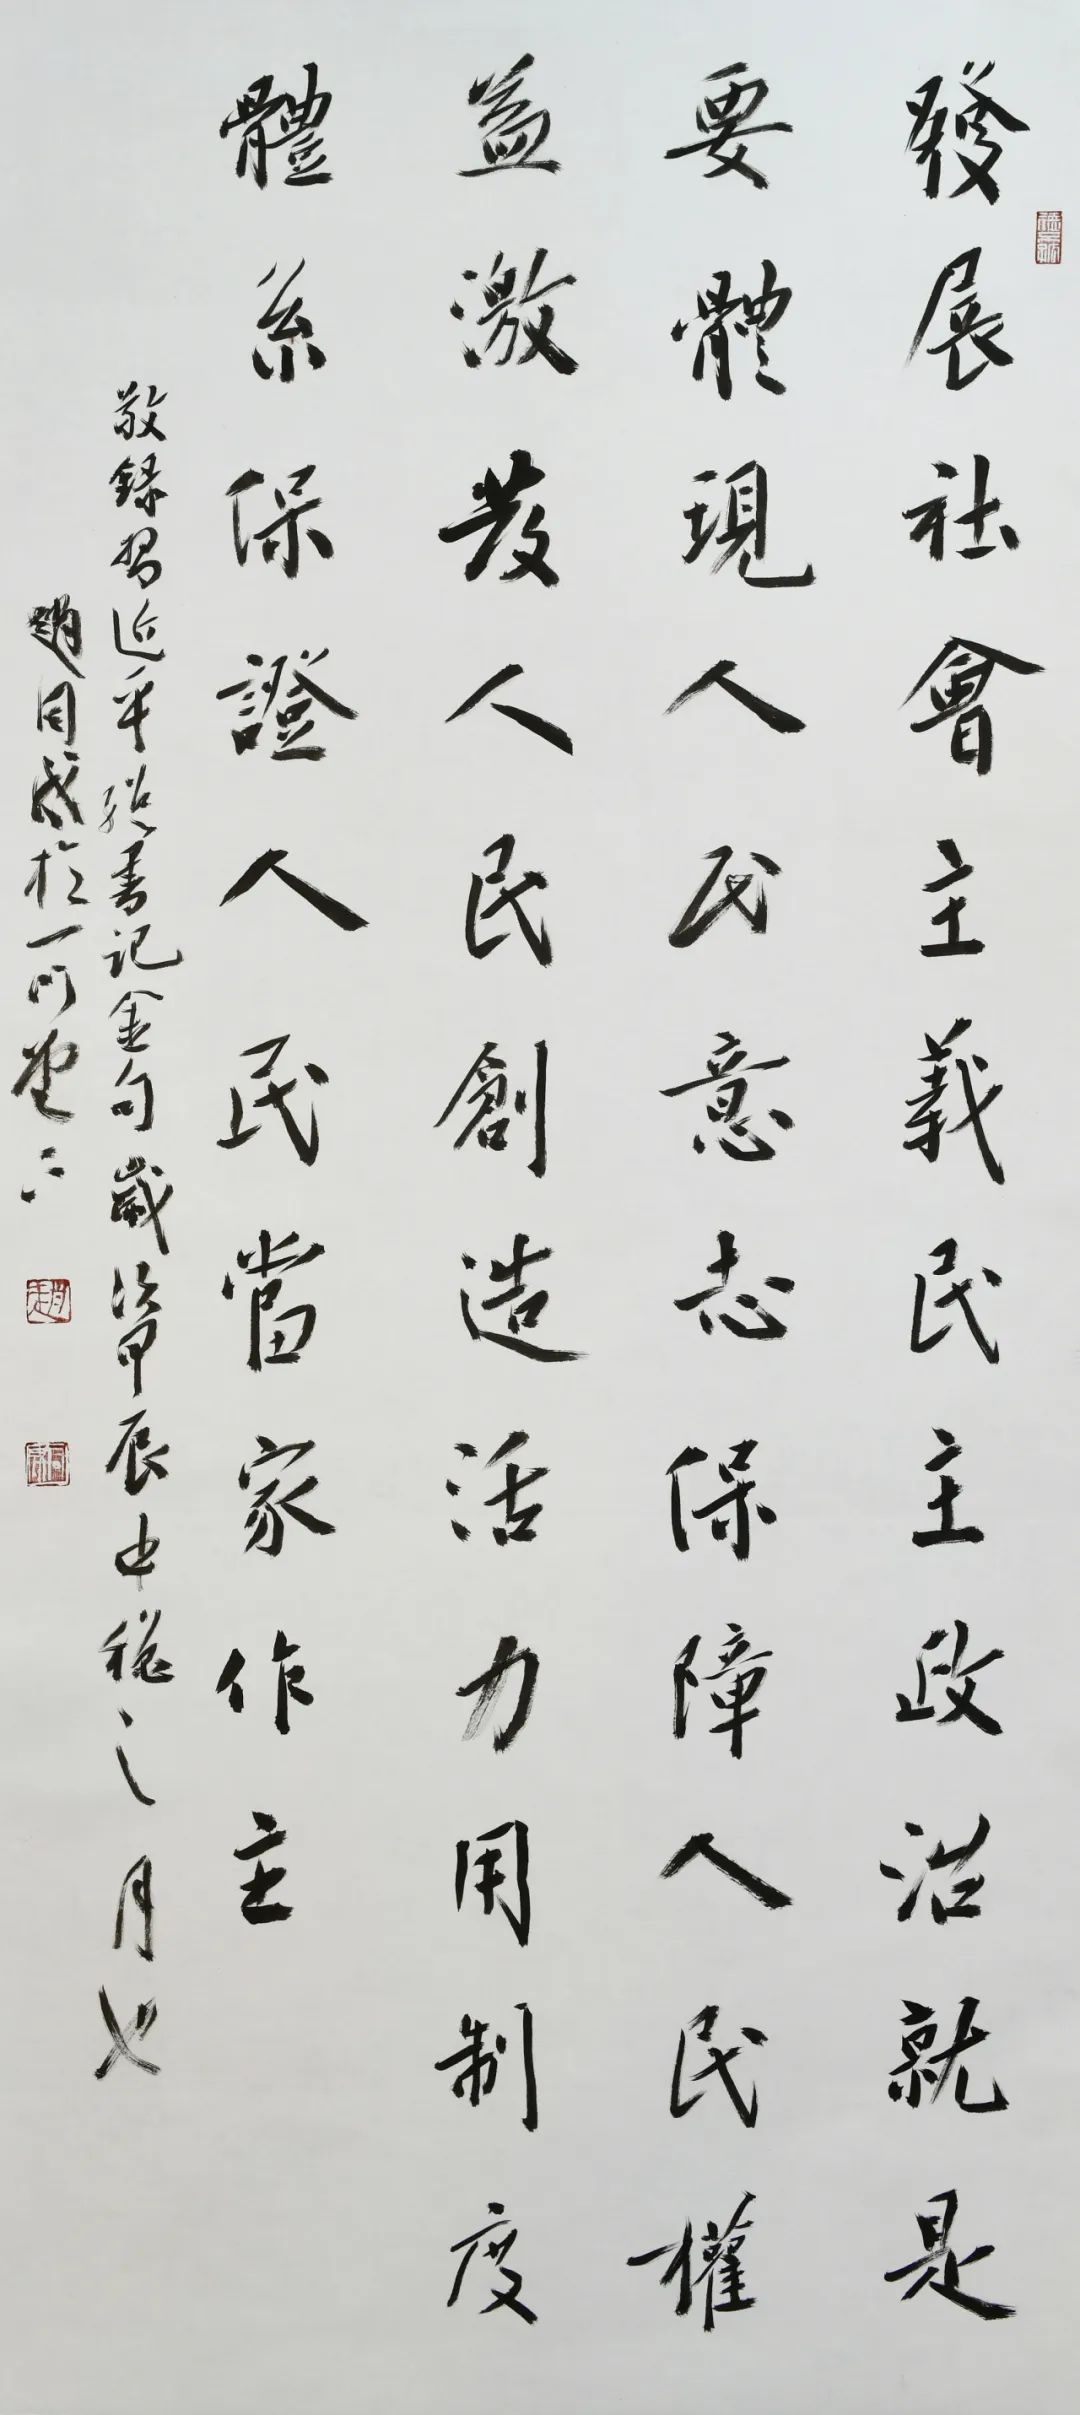 發展社會主義民主政治就是
要體現人民意志保障人民權
益激發人民創造活力用制度
體系保證人民當家作主
敬録習近平總書记金句歲次甲辰中穐之月也
趙同成於一可堂下